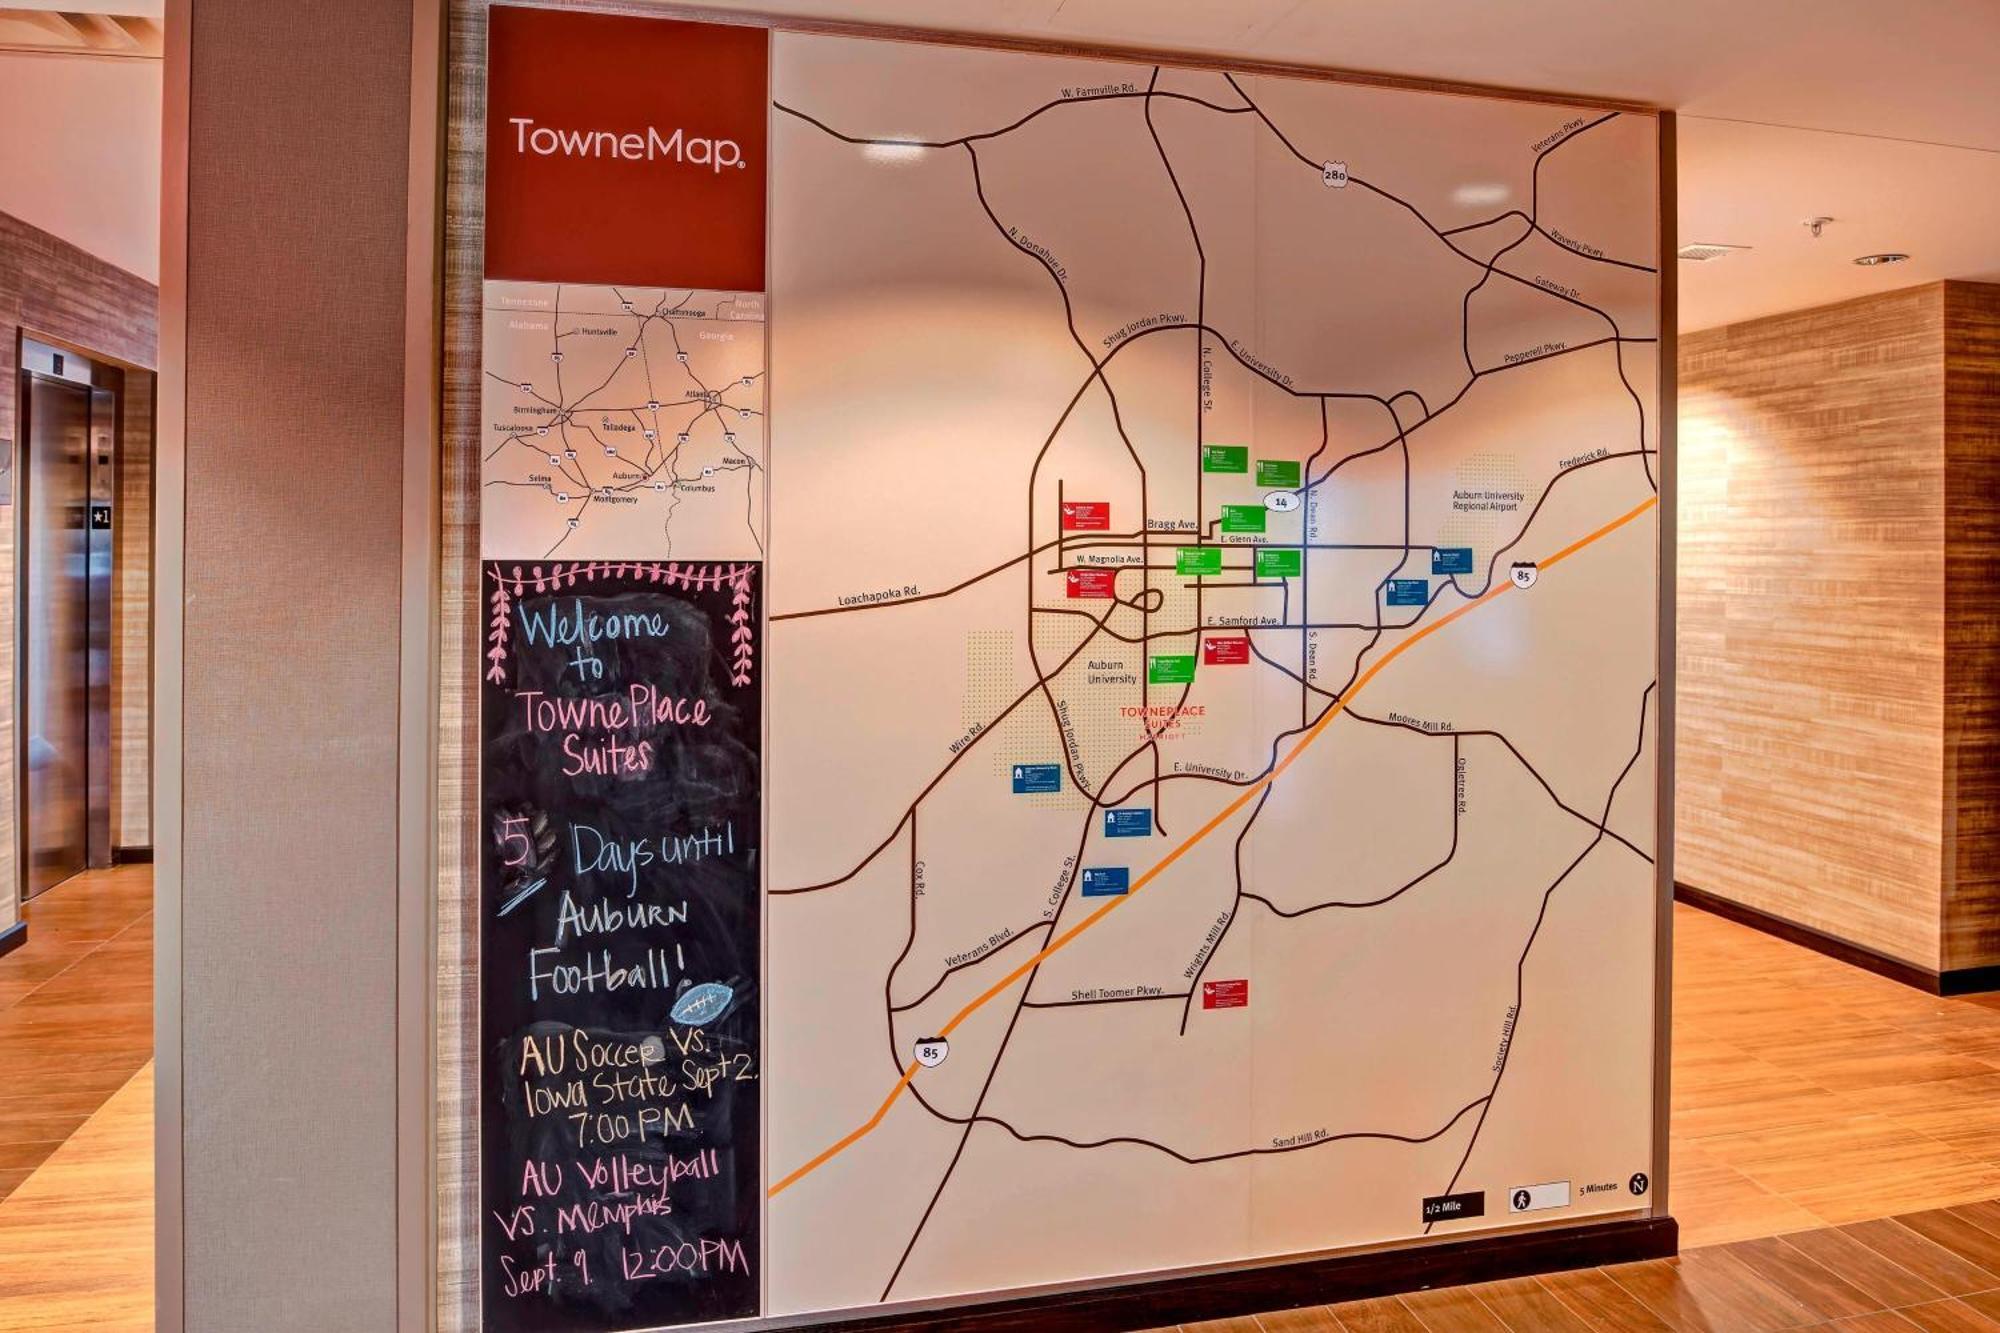 TowneMap®
Tennessee
North
Carolina
Alabama
Georgia
Chattanooga
Huntsville
Birmingham
Atlanta
Tuscaloosa
Talladega
Macon
Selma
Auburn
Montgomery
Columbus
Welcome
to
TownePlace
Suites
5 Days until
Auburn
Football!
AU Soccer Vs.
Iowa State Sept 2.
7:00 PM
AU Volleyball
VS. Memphis
Sept. 9. 12:00PM
W. Farmville Rd.
280
Veterans Pkwy.
Waverly Pkwy.
Gateway Dr.
Pepperell Pkwy.
N. Donahue Dr.
Shug Jordan Pkwy.
N. College St.
E. University Dr.
Frederick Rd.
Auburn University
Regional Airport
14
N. Dean Rd.
Bragg Ave.
E. Glenn Ave.
W. Magnolia Ave.
Loachapoka Rd.
85
E. Samford Ave.
S. Dean Rd.
Auburn
University
TOWNEPLACE
SUITES
MARRIOTT
Shug Jordan Pkwy.
Wire Rd.
E. University Dr.
Moores Mill Rd.
Ogletree Rd.
Cox Rd.
S. College St.
Veterans Blvd.
Wrights Mill Rd.
Shell Toomer Pkwy.
85
Society Hill Rd.
Sand Hill Rd.
1/2 Mile
5 Minutes
N
★1